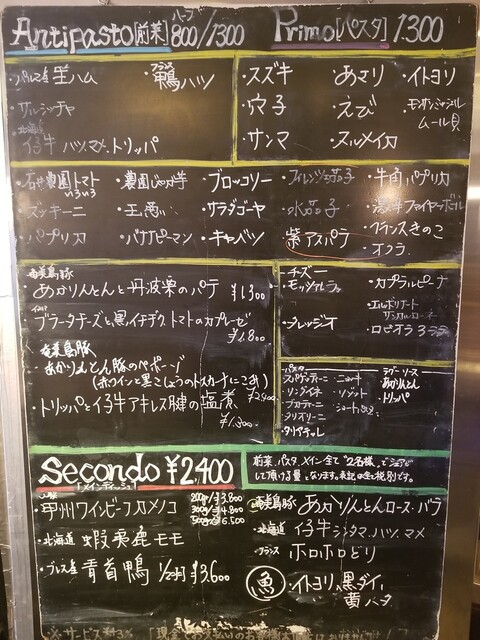 Antipasto[前菜] ハーフ 800/1300
Primo[パスタ] 1300
・パルマ産 生ハム
・フランス 鴨ハツ
・サルシッチャ
・北海道 仔牛 ハツ、マメ、トリッパ
・スズキ ・あさり ・イトヨリ
・穴子 ・えび ・モンサンミッシェル ムール貝
・サンマ ・スルメイカ
農園トマト いろいろ
・ズッキーニ
・パプリカ
・農園じゃが芋
・玉葱
・バナナピーマン
・ブロッコリー
・サラダゴーヤ
・キャベツ
・フィレンツェ茄子
・水茄子
・紫アスパラ
・牛角パプリカ
・激辛ファイヤーボール
・フランスきのこ
・オクラ
奄美島豚
・あかりんとんと丹波栗のパテ ¥1,300
・ブラータチーズと黒イチヂク、トマトのカプレーゼ ¥1,800
奄美島豚
・あかりんとん豚のペポーゾ
(赤ワインと黒こしょうのトスカーナにこみ) ¥2,400
・トリッパと仔牛アキレス腱の塩煮 ¥1,300
チーズ
・モッツァレラ
・タレッジオ
・カプラルピーナ
・ロビオラ
パスタ
・スパゲッティーニ ・ニョッキ
・リングイネ ・リゾット
・ブカティーニ ・ショートパスタ
・タリオリーニ
・タリアテッレ
ラグーソース
・あかりんとん
・トリッパ
Secondo ¥2,400
[メインディッシュ]
前菜、パスタ、メイン全て"2名様"でシェアして頂ける量になります。表記の金額税別です。
・甲州ワインビーフカメノコ
200g/¥3,800
300g/¥4,800
500g/¥6,500
・北海道 蝦夷鹿モモ
・ブレス産 青首鴨 1/2羽 ¥3,600
・奄美島豚 あかりんとんロース・バラ
・北海道 仔牛シンタマ、ハツ、マメ
・フランス ホロホロどり
魚 ・イトヨリ、黒ダイ、
黄ハタ